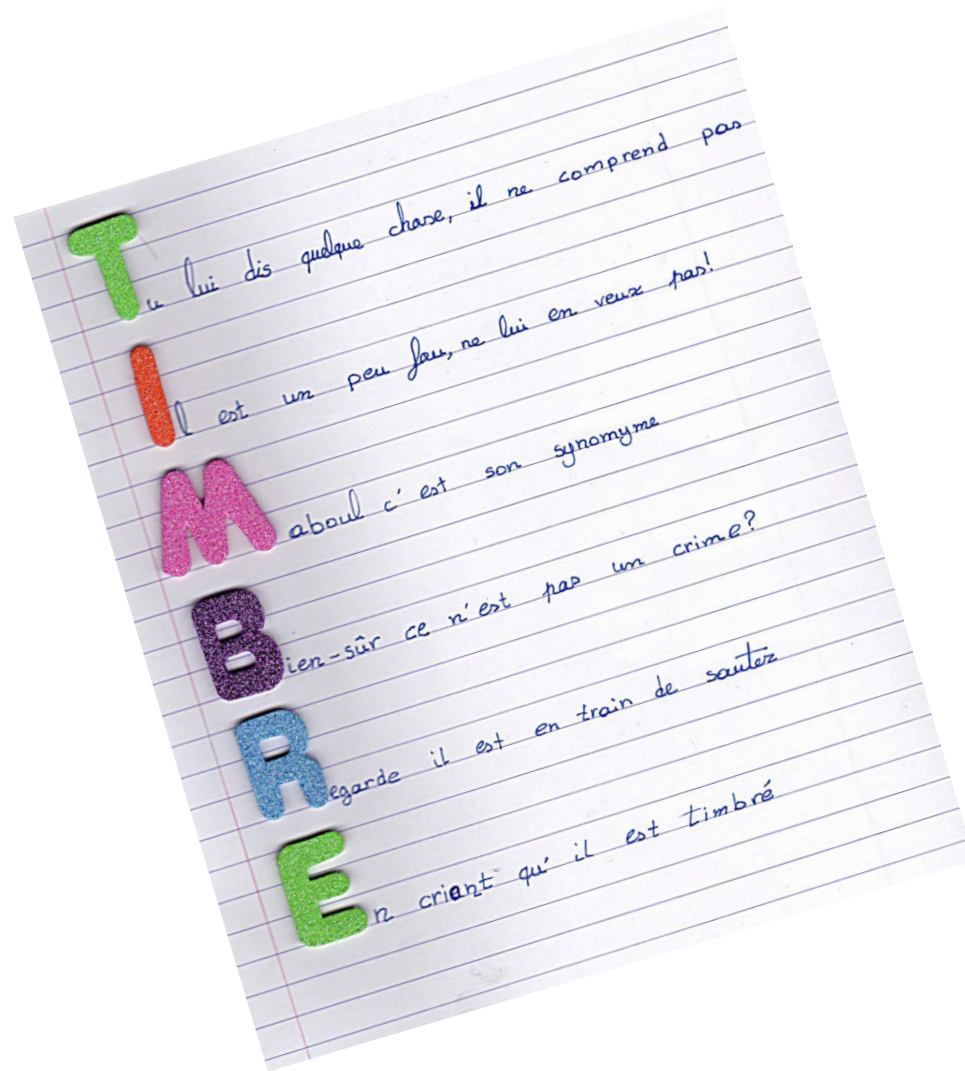 Tu lui dis quelque chose, il ne comprend pas
Il est un peu fou, ne lui en veux pas!
Maboul c'est son synomyme
Bien-sûr ce n'est pas un crime?
Regarde il est en train de sauter
En criant qu'il est timbré